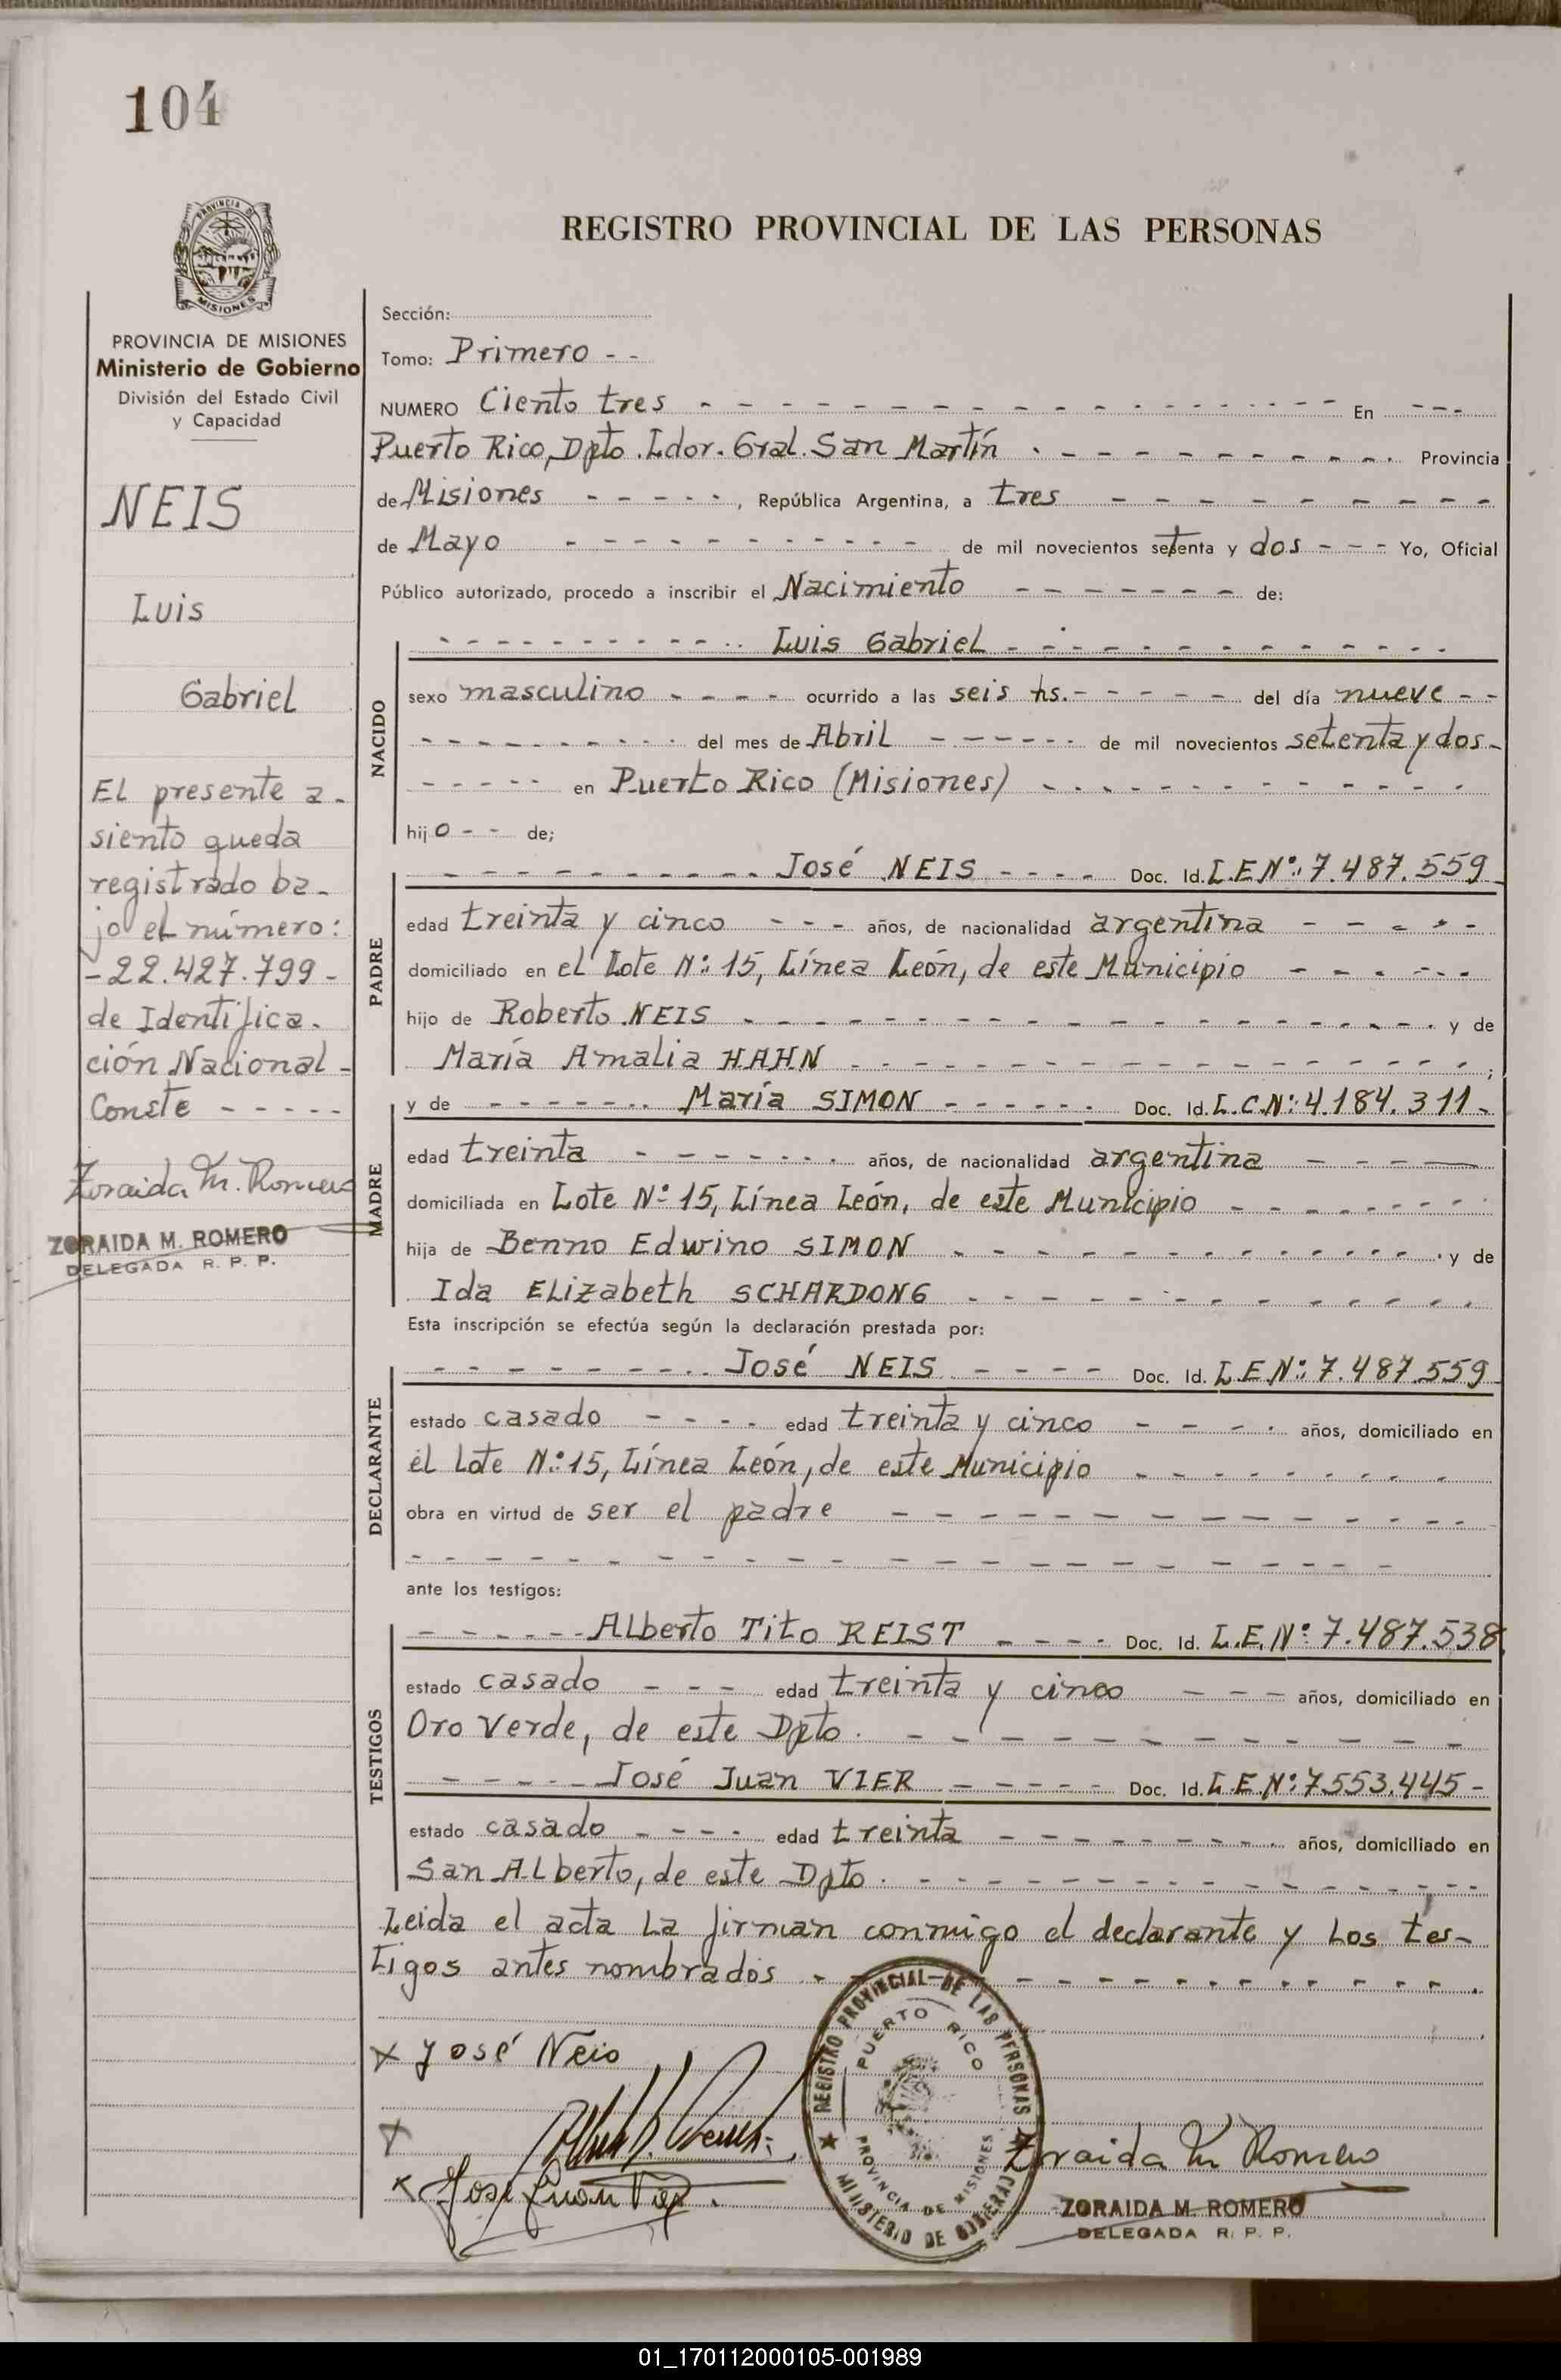 104
PROVINCIA DE
MISIONES
REGISTRO PROVINCIAL DE LAS PERSONAS
PROVINCIA DE MISIONES
Ministerio de Gobierno
División del Estado Civil
y Capacidad
NEIS
Luis
Gabriel
El presente a-
siento queda
registrado ba-
jo el número:
-22.427.799-
de Identifica-
ción Nacional-
Conste - - - - -
Zoraida M. Romero
ZORAIDA M. ROMERO
DELEGADA R. P. P.
Sección:
Tomo: Primero - -
NUMERO Ciento tres - - - En - - -
Puerto Rico, Dpto. Ldor. Gral. San Martín - - - Provincia
de Misiones - - - , República Argentina, a tres - - -
de Mayo - - - de mil novecientos setenta y dos - - - Yo, Oficial
Público autorizado, procedo a inscribir el Nacimiento - - - de:
- - - Luis Gabriel - - -
NACIDO
sexo masculino - - - ocurrido a las seis hs. - - - del día nueve - -
- - - del mes de Abril - - - de mil novecientos setenta y dos -
- - - en Puerto Rico (Misiones) - - -
hijo - - de;
PADRE
- - - José NEIS - - - Doc. Id. L.E.Nº: 7.487.559
edad treinta y cinco - - - años, de nacionalidad argentina - - -
domiciliado en el Lote Nº: 15, Línea León, de este Municipio - - -
hijo de Roberto NEIS - - - y de
María Amalia HAHN - - - ;
MADRE
y de - - - María SIMON - - - Doc. Id. L.C.Nº: 4.184.311-
edad treinta - - - años, de nacionalidad argentina - - -
domiciliada en Lote Nº 15, Línea León, de este Municipio - - -
hija de Benno Edwino SIMON - - - y de
Ida Elizabeth SCHARDONG - - -
Esta inscripción se efectúa según la declaración prestada por:
DECLARANTE
- - - José NEIS - - - Doc. Id. L.E.Nº: 7.487.559
estado casado - - - edad treinta y cinco - - - años, domiciliado en
el Lote Nº: 15, Línea León, de este Municipio - - -
obra en virtud de ser el padre - - -
- - -
ante los testigos:
TESTIGOS
- - - Alberto Tito REIST - - - Doc. Id. L.E.Nº: 7.487.538
estado casado - - - edad treinta y cinco - - - años, domiciliado en
Oro Verde, de este Dpto. - - -
- - - José Juan VIER - - - Doc. Id. L.E.Nº: 7.553.445-
estado casado - - - edad treinta - - - años, domiciliado en
San Alberto, de este Dpto. - - -
Leida el acta la firman conmigo el declarante y los tes-
tigos antes nombrados - - -
x José Neis
x
x José Juan Vier.
REGISTRO PROVINCIAL DE LAS PERSONAS
PUERTO RICO
PROVINCIA DE MISIONES
MINISTERIO DE GOBIERNO
Zoraida M Romero
ZORAIDA M. ROMERO
DELEGADA R. P. P.
01_170112000105-001989